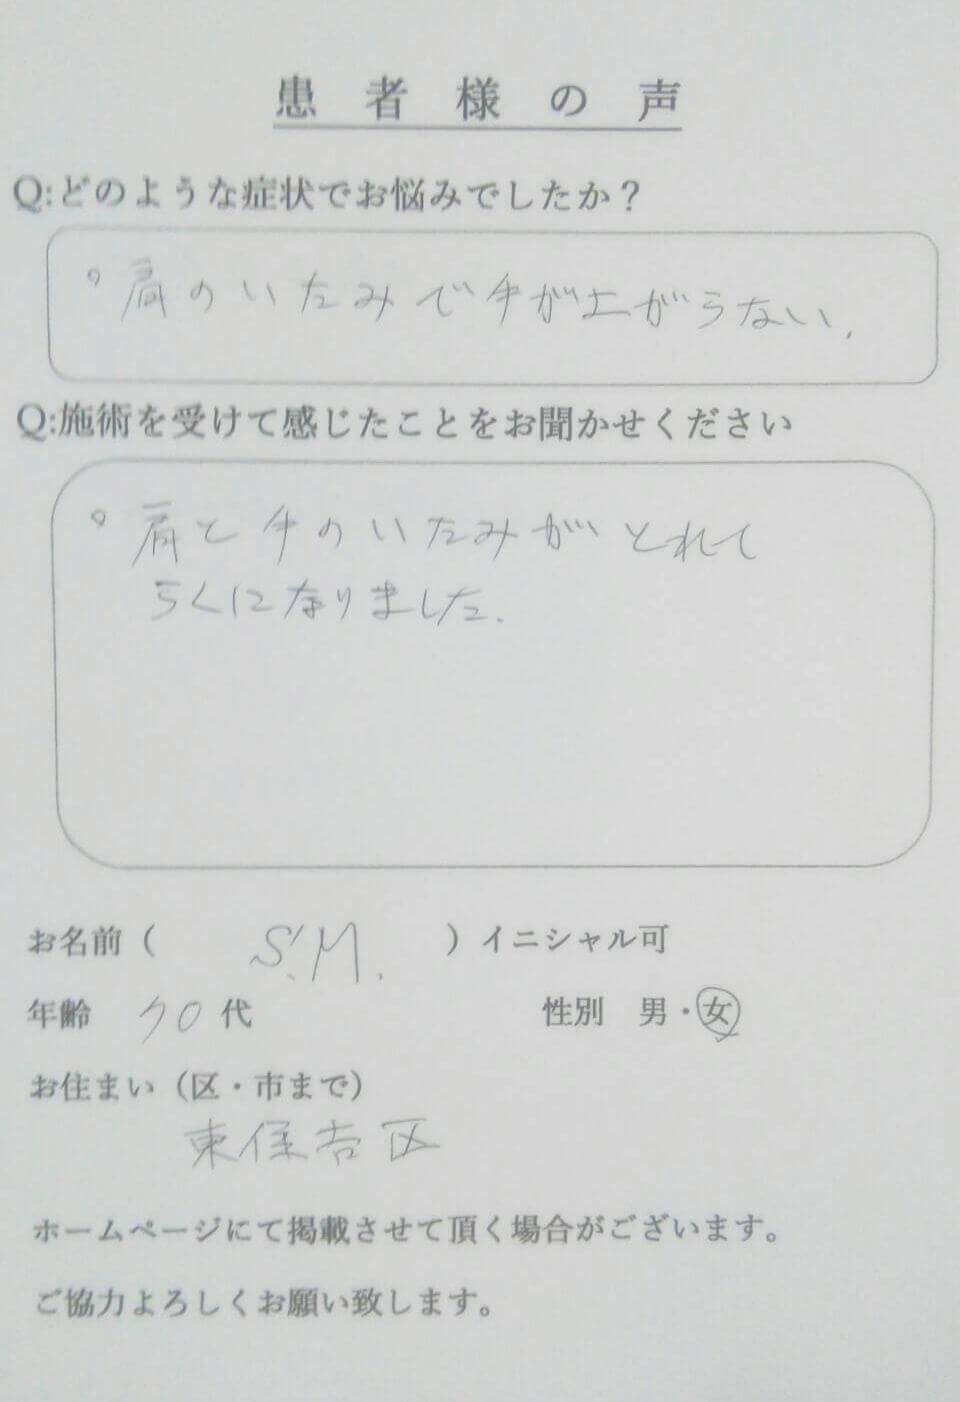 患者様の声
Q:どのような症状でお悩みでしたか？
○肩のいたみで手が上がらない.
Q:施術を受けて感じたことをお聞かせください
○肩と手のいたみがとれて
らくになりました.
お名前（ S.M. ）イニシャル可
年齢 70代 性別 男・女
お住まい（区・市まで）
東住吉区
ホームページにて掲載させて頂く場合がございます。
ご協力よろしくお願い致します。